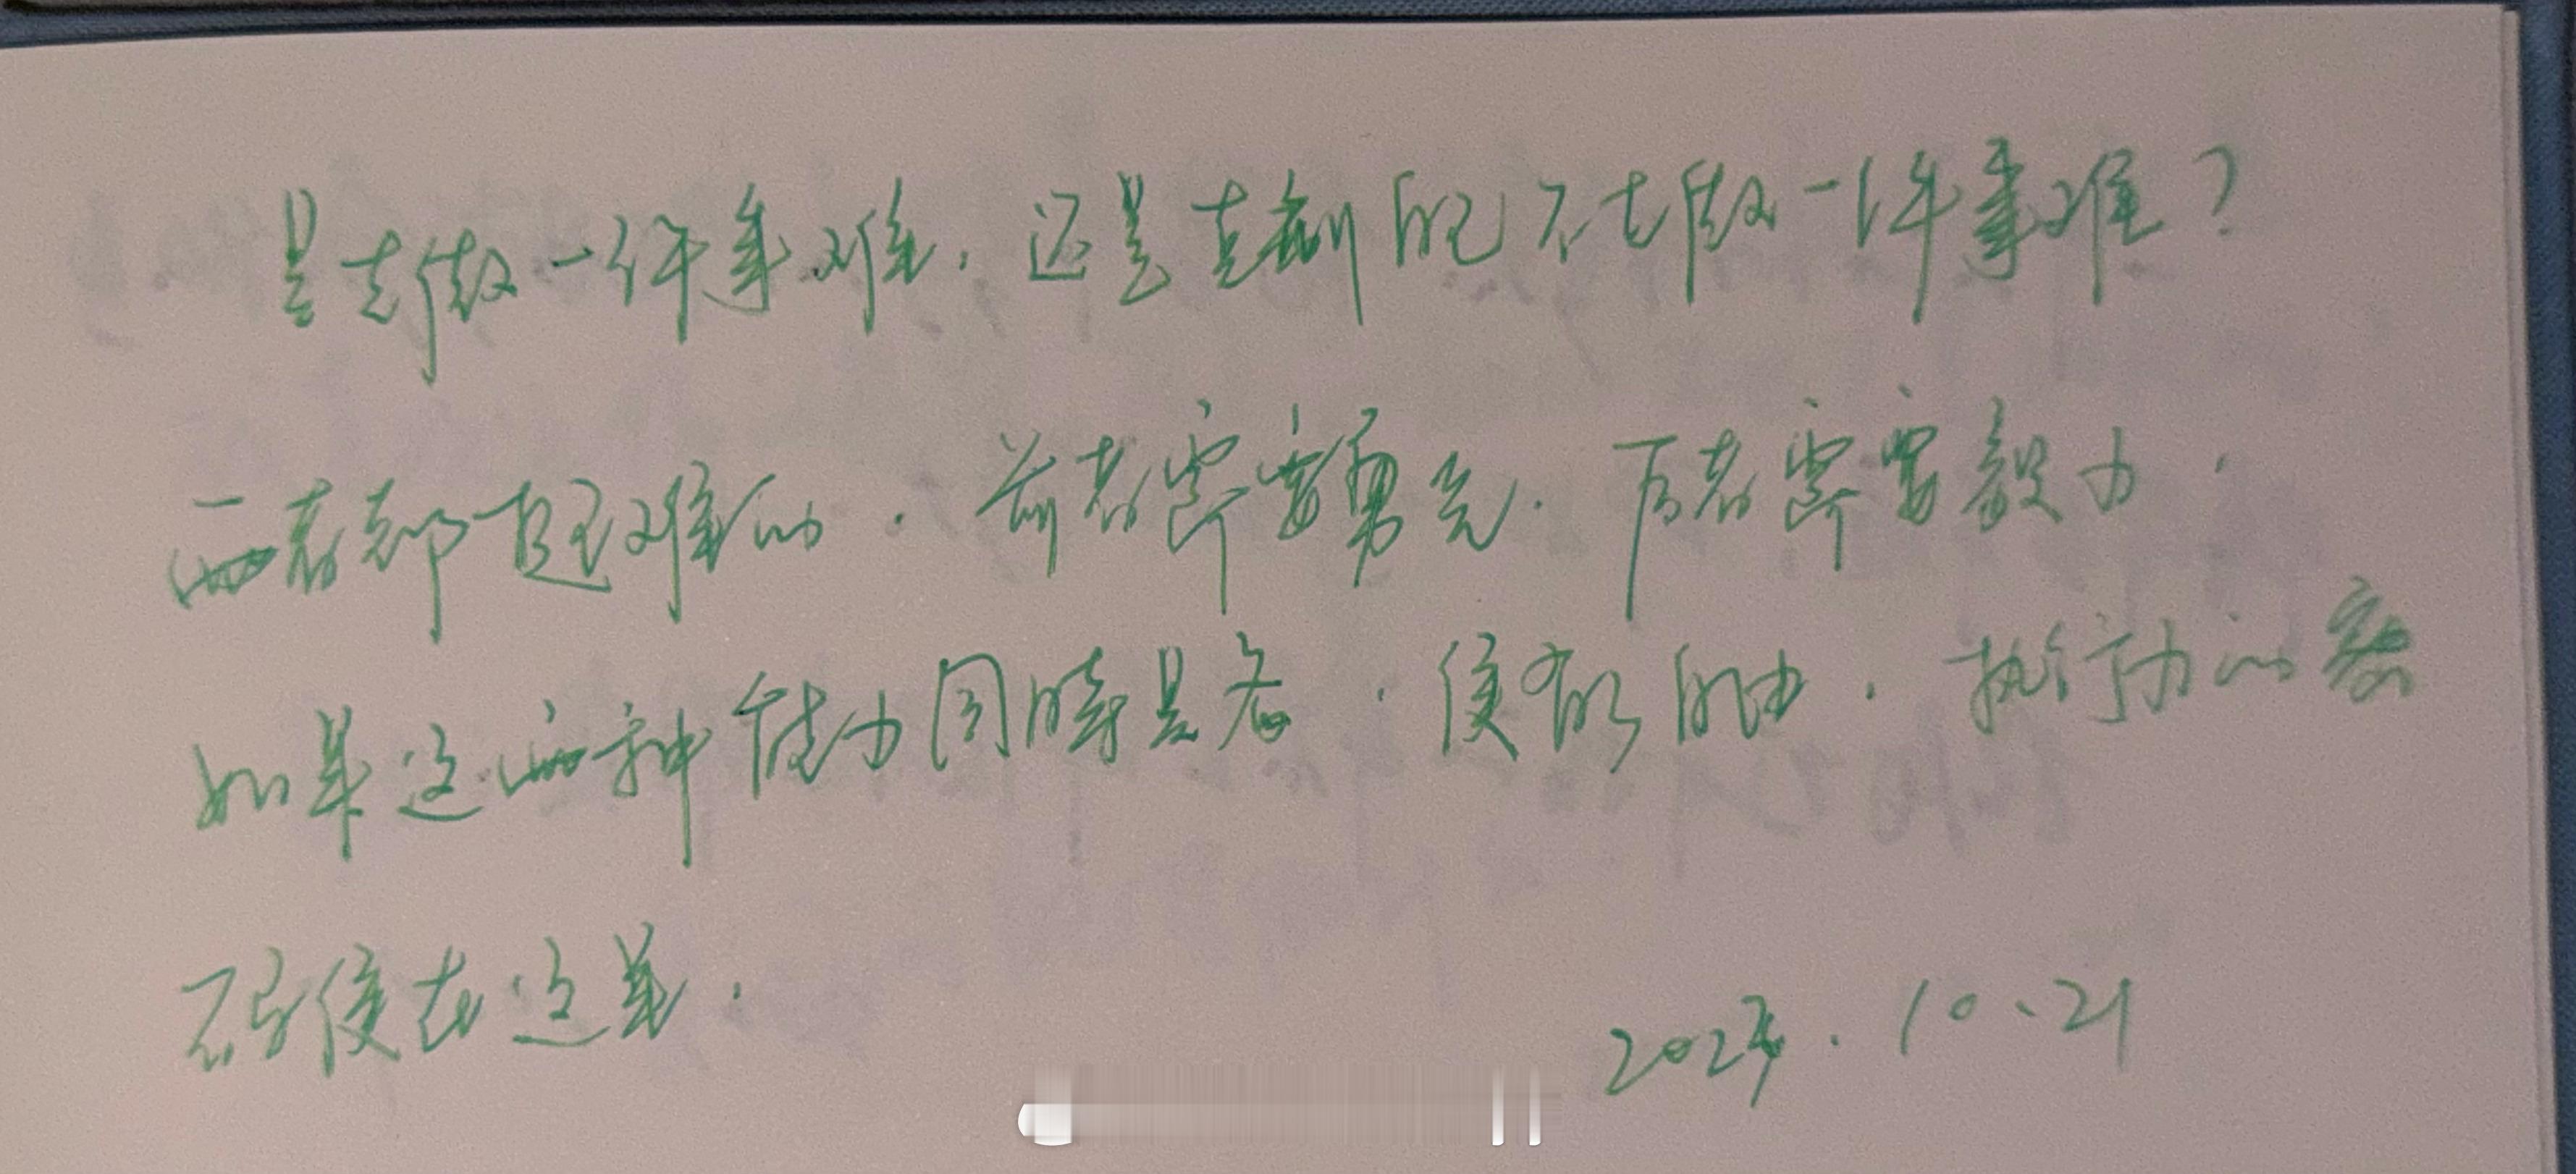 是去做一件事难，还是克制自己不去做一件事难？
两者都挺难的，前者需要勇气，后者需要毅力，
如果这两种能力同时具备，便有了自由，执行力的密
码便在这里。
2023.10.21